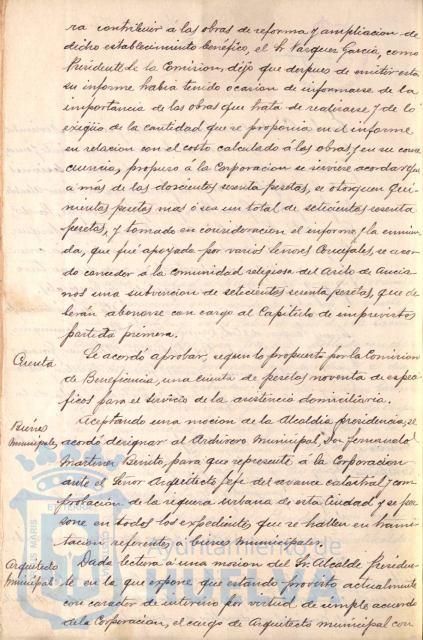 ra contribuir á las obras de reforma y ampliacion de
dicho establecimiento benéfico, el Sr Vazquez Garcia, como
Presidente de la Comision, dijo que despues de emitir esta
su informe habia tenido ocasion de informarse de la
importancia de las obras que trata de realizarse y de lo
exigüo de la cantidad que se proponia en el informe
en relacion con el costo calculado á las obras y en su conse
cuencia, propuso á la Corporacion se sirviese acordar que
á mas de las doscientas sesenta pesetas, se otorguen Qui-
nientas pesetas mas ó sea un total de setecientas sesenta
pesetas, y tomado en consideracion el informe y la enmien
da, que fué apoyada por varios Señores Concejales, se acor
do conceder á la Comunidad religiosa del Asilo de Ancia
nos una subvencion de setecientas sesenta pesetas, que de
berán abonarse con cargo al Capitulo de imprevistos
partida primera.
Cuenta
Se acordo aprobar, segun lo propuesto por la Comision
de Beneficencia, una cuenta de pesetas noventa de especi
ficos para el servicio de la asistencia domiciliaria.
Bienes municipales
Aceptando una mocion de la Alcaldia presidencia, se
acordo designar al Archivero Municipal, Don Fernando
Martinez Benito, para que represente á la Corporacion
ante el Señor Arquitecto Jefe del avance catastral y com
probacion de la riqueza urbana de esta Ciudad y se per
sone en todos los expedientes que se hallen en trami
tacion referentes á bienes municipales.
Arquitecto municipal
Dada lectura á una mocion del Sr. Alcalde Presiden
te en la que expone que estando provisto actualmente
con caracter de interino por virtud de simple acuerdo
de la Corporacion, el cargo de Arquitecto municipal con
Ayuntamiento de
HUELVA